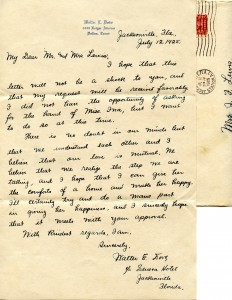 Walter E. Dove
Dallas, Texas
Jacksonville, Fla.
July 13, 1925.
My Dear Mr. & Mrs. Lewis:
I hope that this
letter will not be a shock to you, and
that my request will be received favorably.
I did not have the opportunity of asking
for the hand of Miss Ima, and I want
to do so at this time.
There is no doubt in our minds but
that we understand each other and I
believe that our love is mutual. We
believe that we realize the step we are
taking, and I hope that I can give her
the comforts of a home and make her happy.
I'll certainly try and do a mans part
in giving her happiness, and I sincerely hope
that it meets with your approval.
With kindest regards, I am.
Sincerely,
Walter E. Dove
% Seminole Hotel
Jacksonville
Florida.